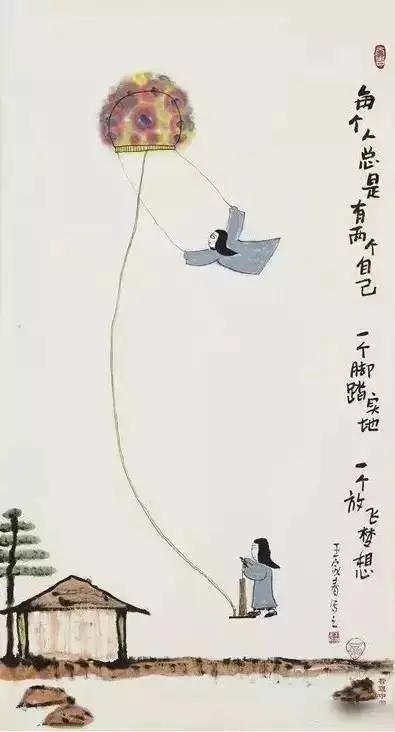 每个人总是有两个自己
一个脚踏实地
一个放飞梦想